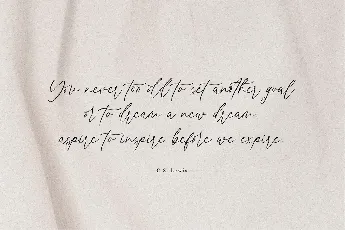 You never too old to set another goal
or to dream a new dream
aspire to inspire before we expire
C.S. Lewis